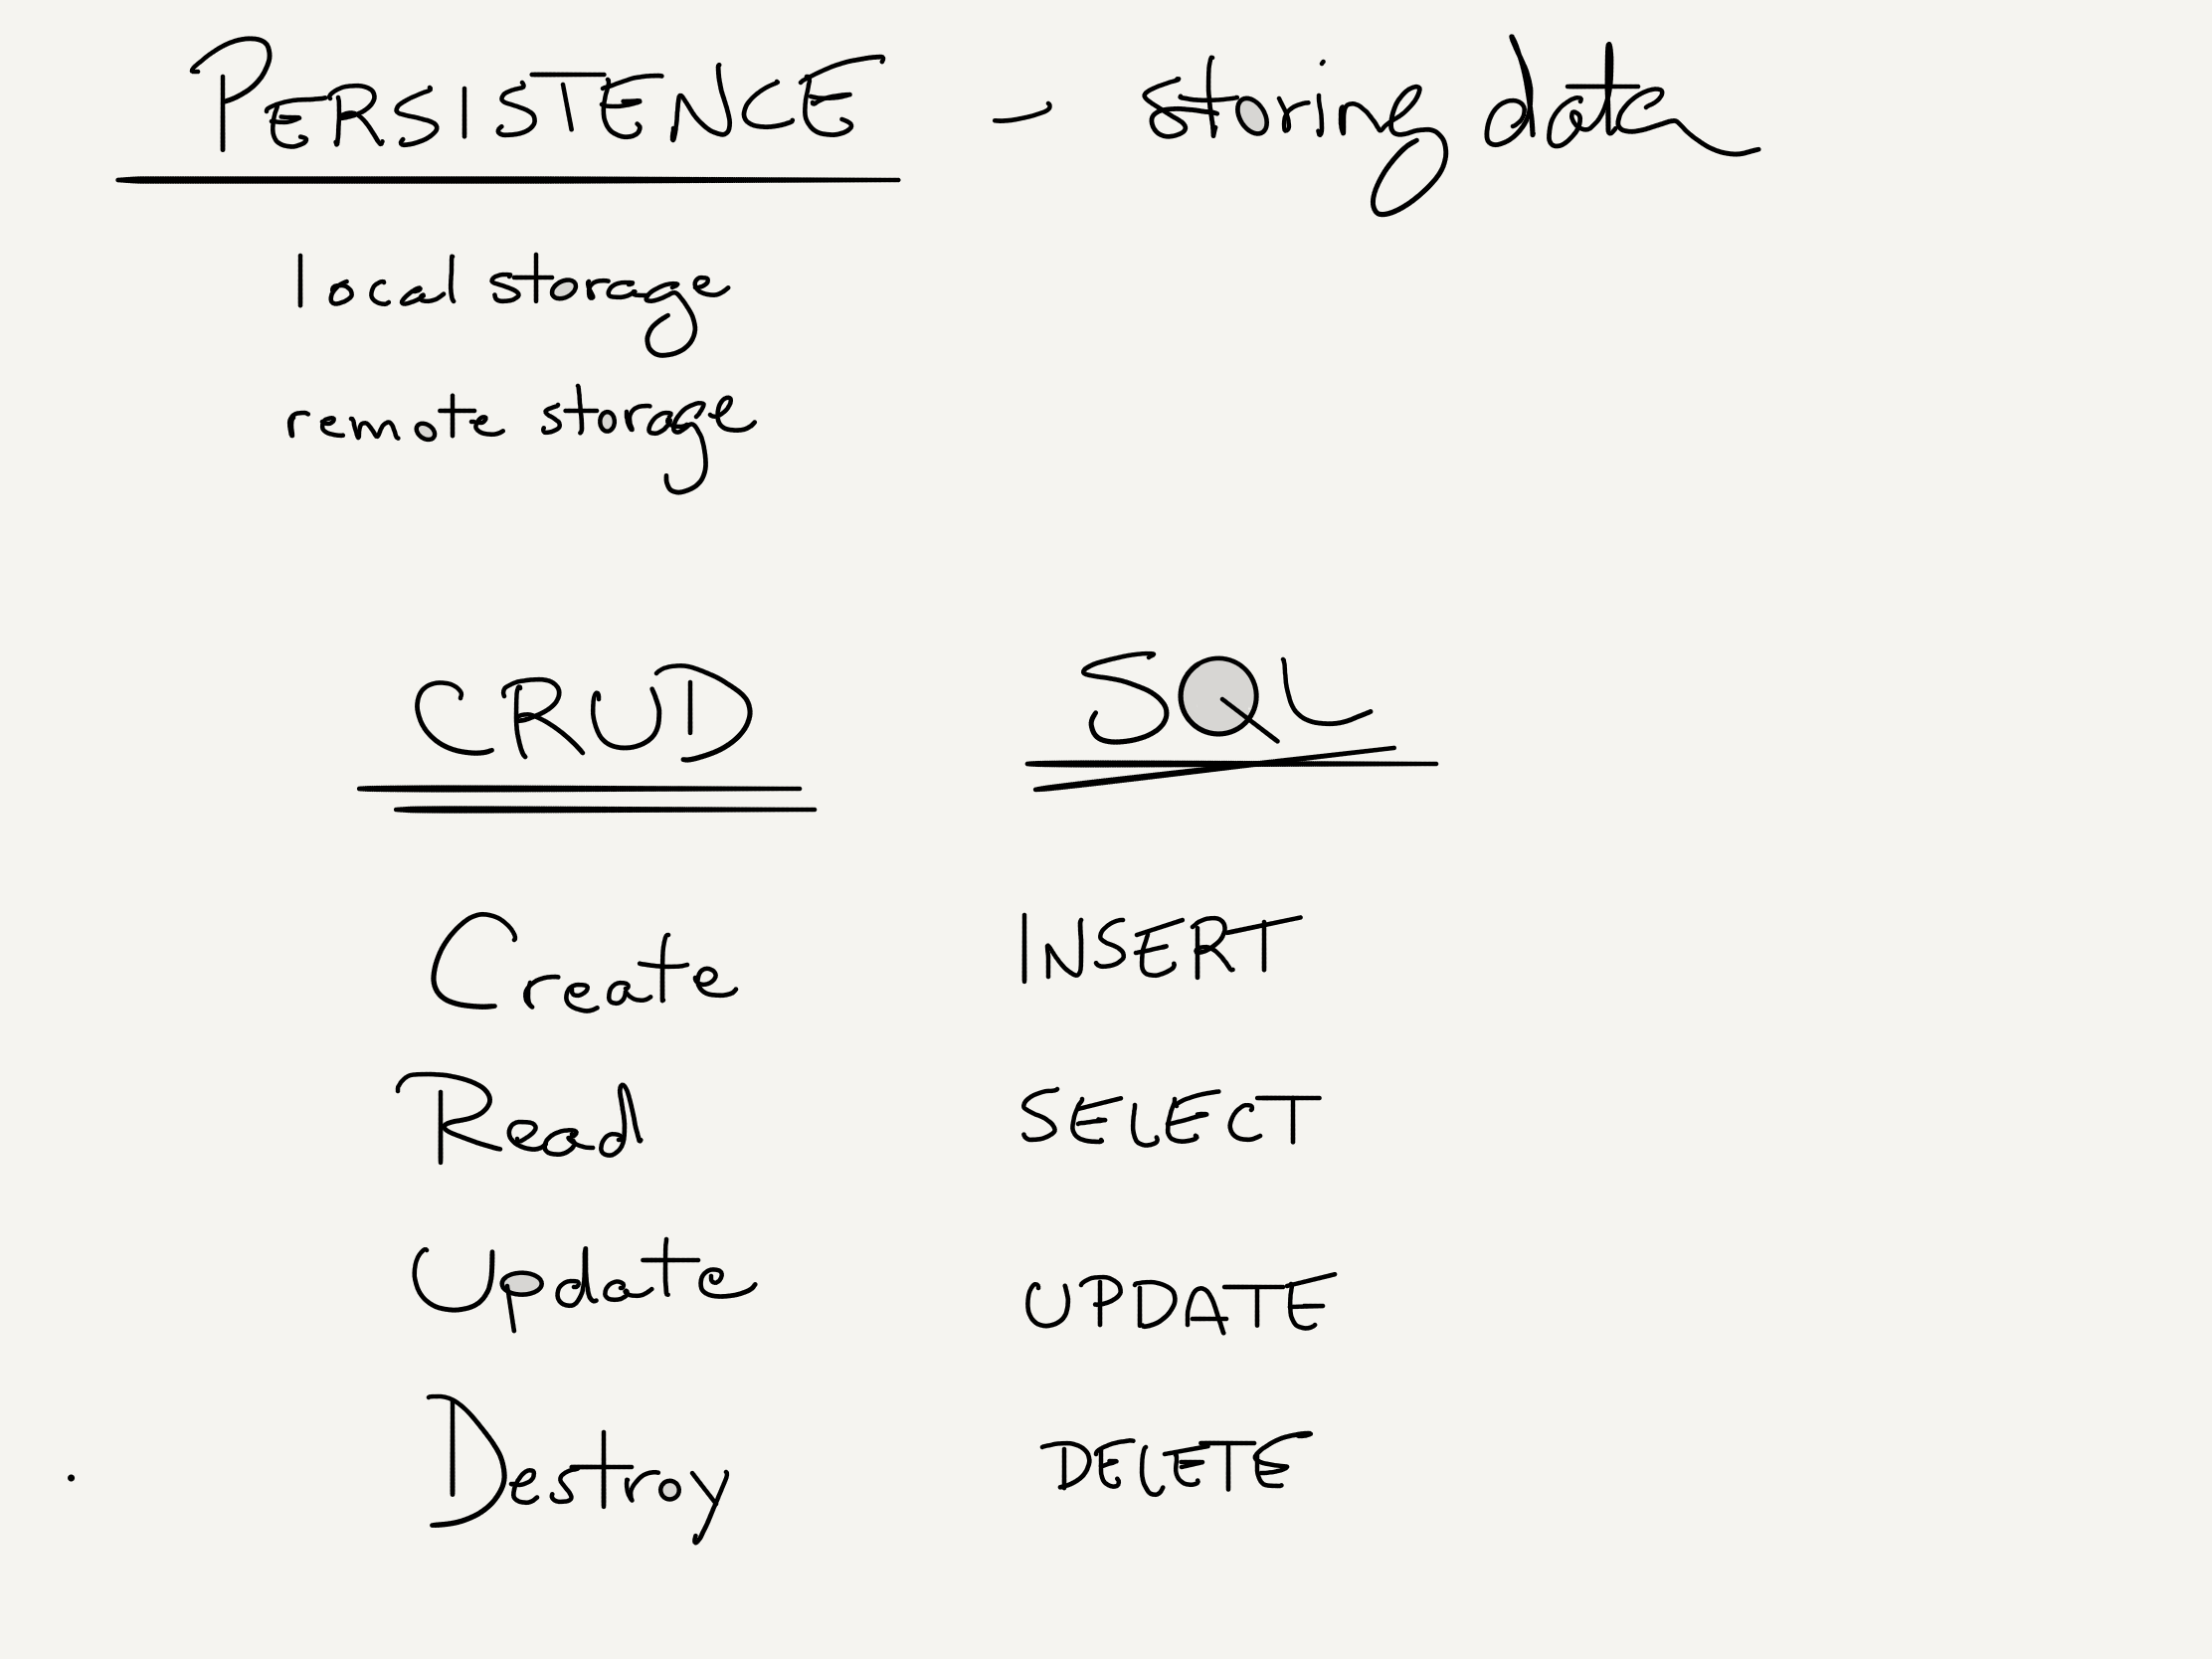 PERSISTENCE - storing data
local storage
remote storage
CRUD SQL
Create INSERT
Read SELECT
Update UPDATE
Destroy DELETE